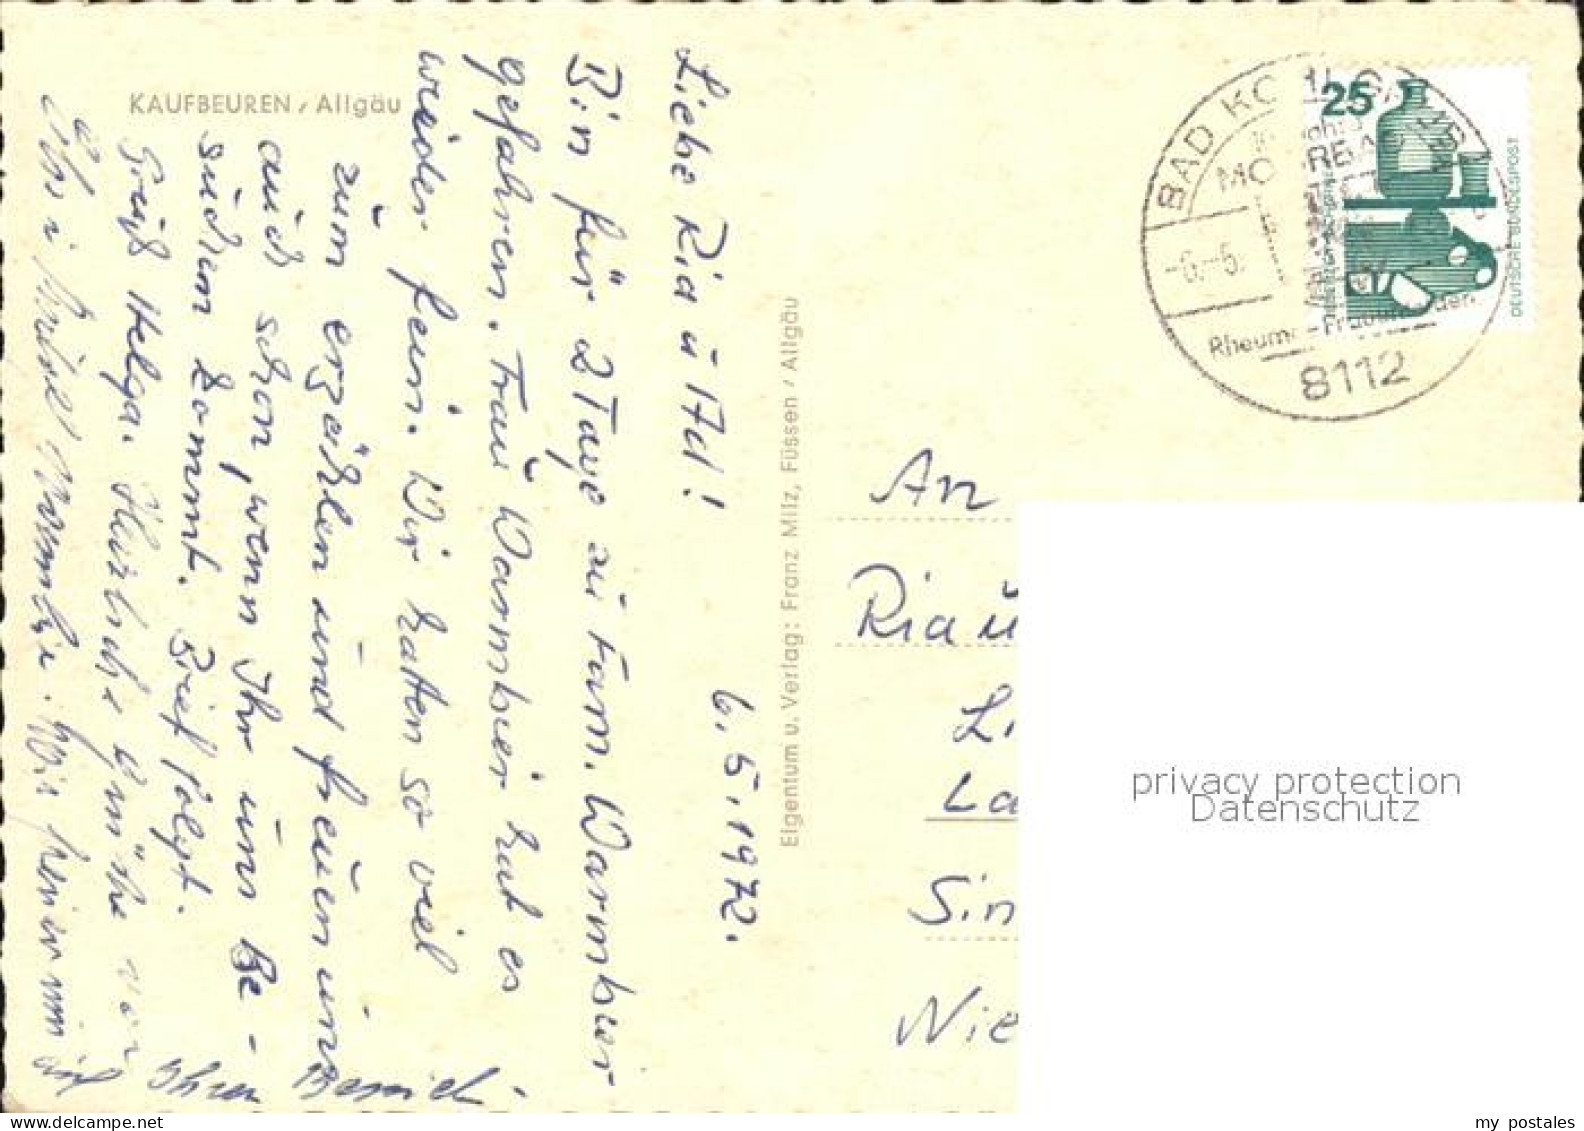 KAUFBEUREN / Allgäu
Liebe Ria u Ad!
6.5.1972.
Bin für 2 Tage zu Fam. Warmbier
gefahren. Frau Warmbier hat es
wieder fein. Wir hatten so viel
zum erzählen und freuen uns
auch schon, wenn Ihr uns Be-
such kommt. Brief folgt.
Gruß Helga. Herzliche Grüße von
Warmbier. Wir freuen uns
auf Ihren Besuch
Eigentum u. Verlag: Franz Milz, Füssen / Allgäu
BAD KO
MO RBA
-6.-5.
Rheuma-Frauenleiden
8112
25
DEUTSCHE BUNDESPOST
An
Ria u
Li
La
Sin
Nie
privacy protection
Datenschutz
my postales